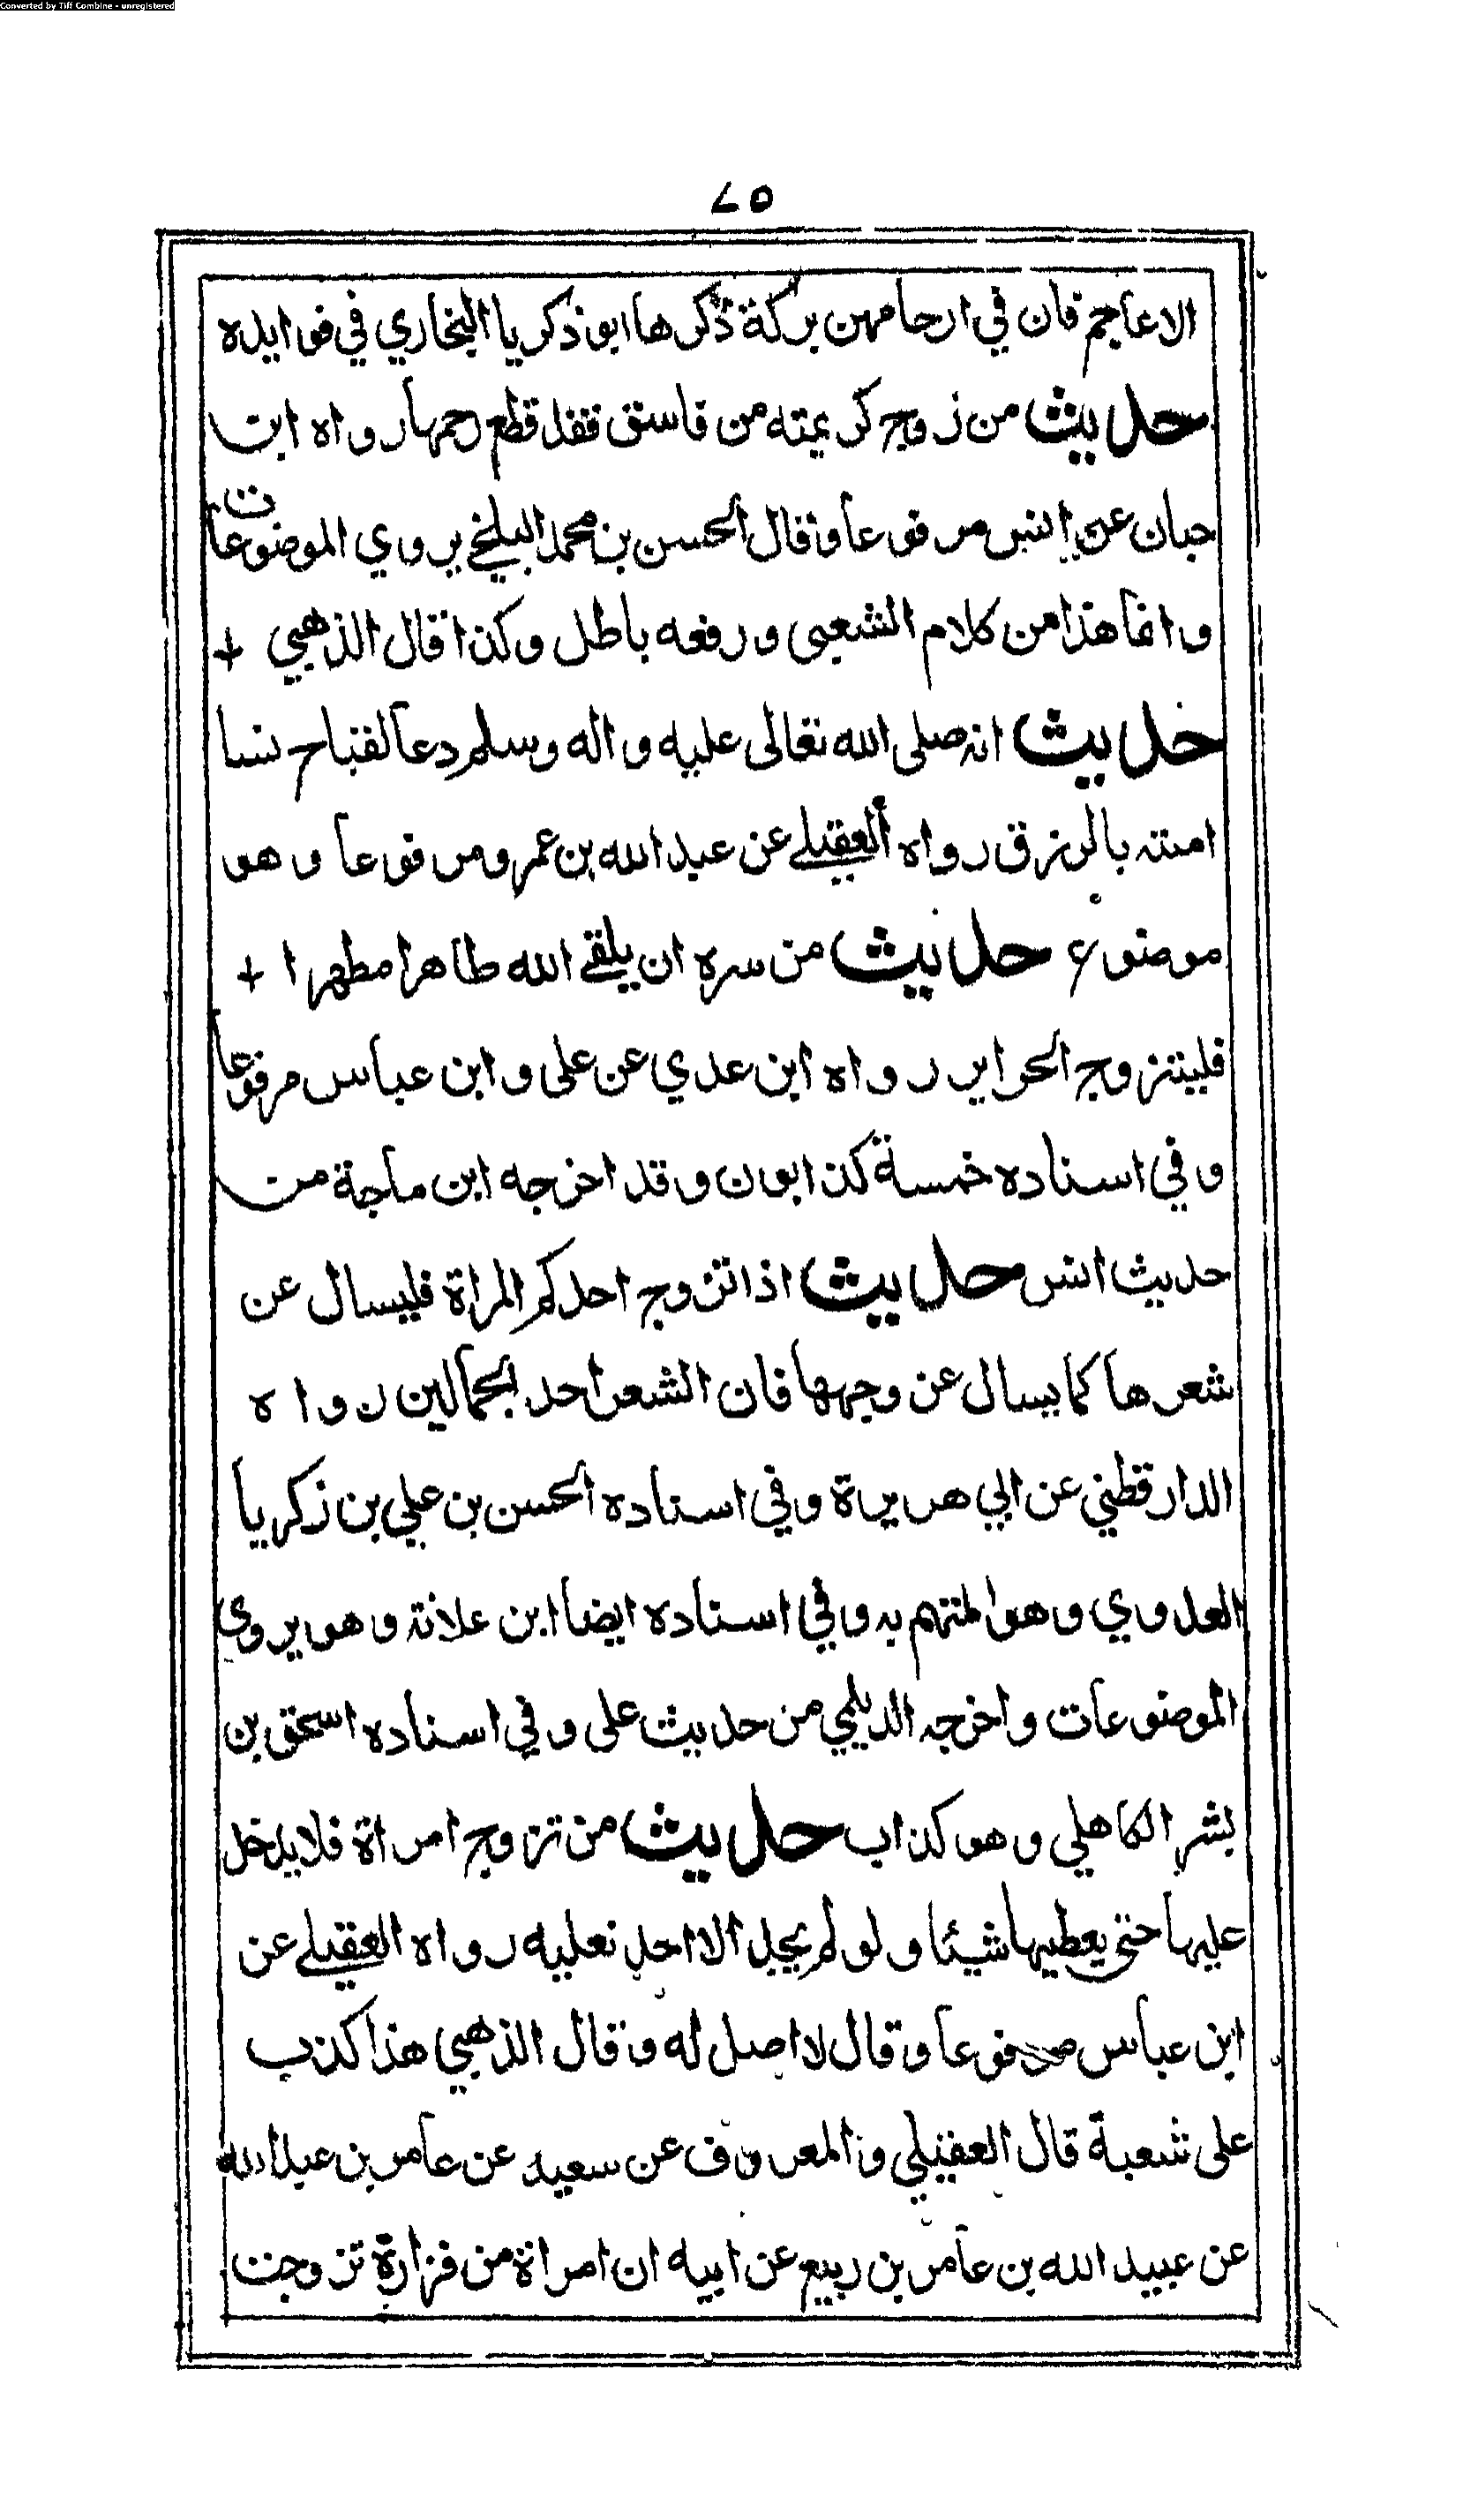 Converted by Tiff Combine - unregistered
٤٥
الاعاجم فان في ارحامهن بركة ذكرها ابو ذكريا البخاري في فوايده
حديث من زوج كريمته من فاسق فقد قطع رحمها رواه ابن
حبان عن انس مرفوعا وقال الحسن بن محمد البلخي يروي الموضوعات
وانما هذا من كلام الشعبي ورفعه باطل وكذا قال الذهبي +
حديث انه صلى الله تعالى عليه واله وسلم دعا لقباح نسا
امته بالرزق رواه العقيلي عن عبد الله بن عمرو مرفوعا وهو
موضوع حديث من سره ان يلقى الله طاهرا مطهرا +
فليتزوج الحراير رواه ابن عدي عن على وابن عباس مرفوعا
وفي اسناده خمسة كذابون وقد اخرجه ابن ماجة من
حديث انس حديث اذا تزوج احدكم المراة فليسال عن
شعرها كما يسال عن وجهها فان الشعر احد الجمالين رواه
الدارقطني عن ابي هريرة وفي اسناده الحسن بن علي بن زكريا
العدوي وهو المتهم به وفي اسناده ايضا ابن علاثه وهو يروي
الموضوعات واخرجه الديلمي من حديث على وفي اسناده اسحق بن
بشر الكاهلي وهو كذاب حديث من تزوج امراة فلا يدخل
عليها حتى يعطيها شيئا ولو لم يجد الا احد نعليه رواه العقيلي عن
ابن عباس مرفوعا وقال لا اصل له وقال الذهبي هذا كذب
على شعبة قال العقيلي والمعروف عن سعيد عن عامر بن عبد الله
عن عبيد الله بن عامر بن ربيع عن ابيه ان امراة من فزارة تزوجت